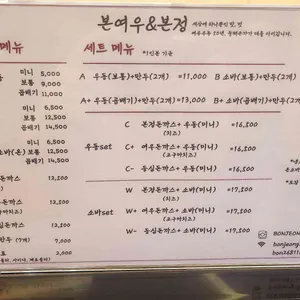 본여우&본정
세상에 하나뿐인 맛, 멋
메뉴
세트 메뉴 *1인분 기준
미니 5,000
보통 9,000
곱배기 11,000
A 우동(보통)+만두(2개) =11,000
B 소바(보통)+만두(2개)
A+ 우동(곱배기)+만두(2개) =13,000
B+ 소바(곱배기)+만두(2개)
미니 6,500
보통 12,500
곱배기 14,500
미니 6,500
보통 12,500
곱배기 14,500
우동set
C 본정돈까스+ 우동(미니) =16,500
(치즈)
C+ 여우돈까스+ 우동(미니) =16,500
(고구마치즈)
C- 등심돈까스+ 우동(미니) =16,500
소바set
W 본정돈까스+ 소바(미니) =17,500
(치즈)
W+ 여우돈까스+ 소바(미니) =17,500
(고구마치즈)
W- 등심돈까스+ 소바(미니) =17,500
돈까스 13,500
돈까스 13,500
돈까스 13,500
만두 (7개) 7,000
2,000
BONJEON
bonjeong